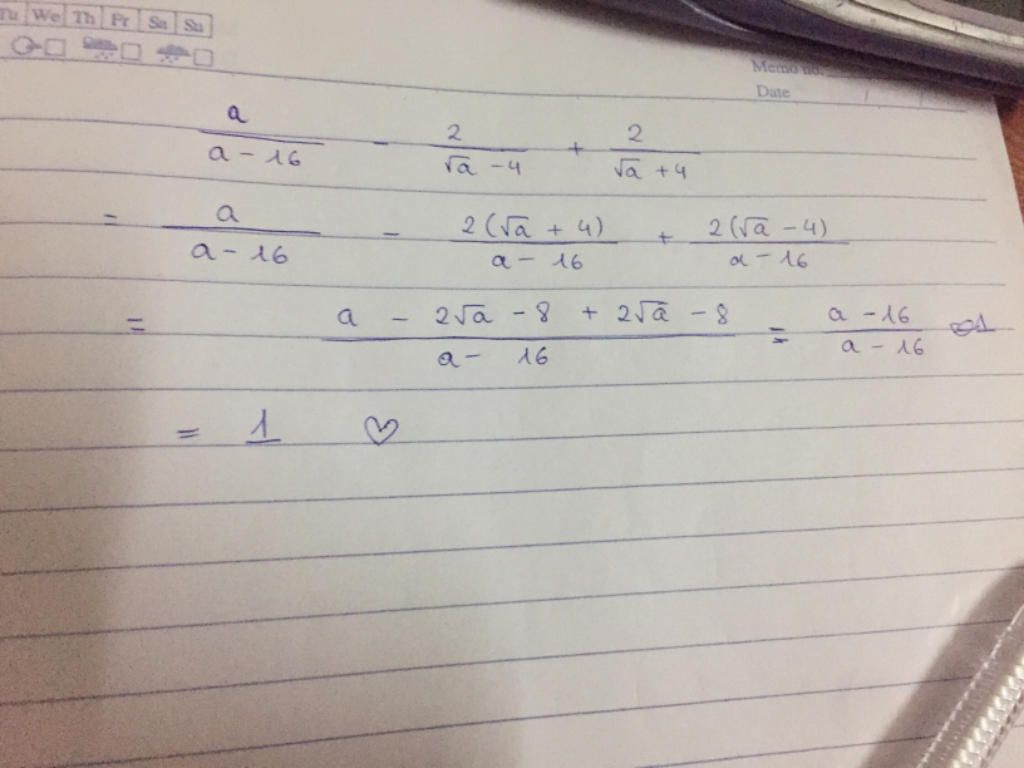 Tu We Th Fr Sa Su
Memo no.
Date / /
a/(a - 16) - 2/(√a - 4) + 2/(√a + 4)
= a/(a - 16) - 2(√a + 4)/(a - 16) + 2(√a - 4)/(a - 16)
= (a - 2√a - 8 + 2√a - 8)/(a - 16) = (a - 16)/(a - 16)
= 1 ♡